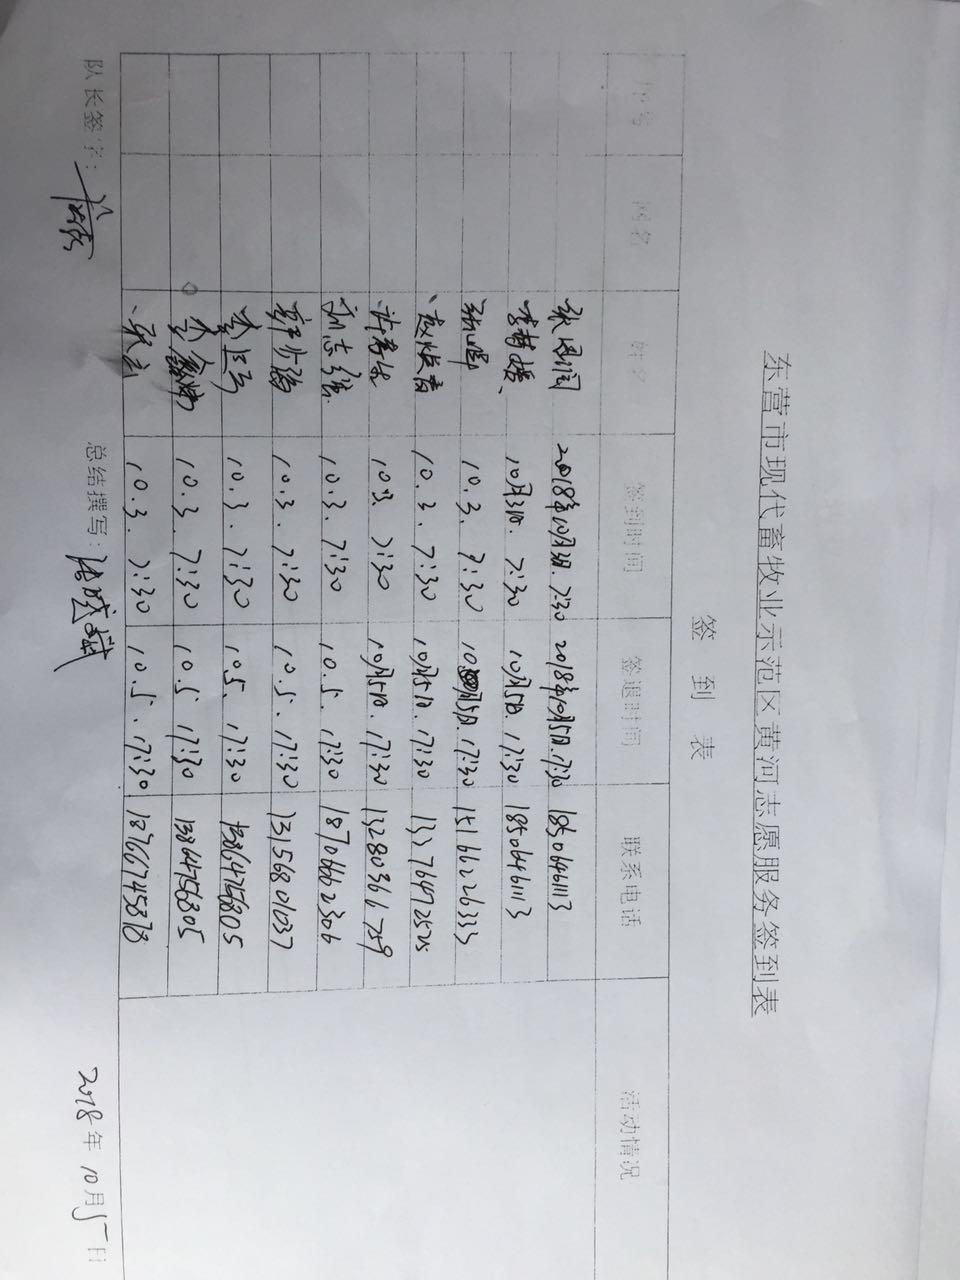 东营市现代畜牧业示范区黄河志愿服务签到表
签 到 表
序号 网名 姓名 签到时间 签退时间 联系电话 活动情况
2018年10月3日.7:30 2018年10月5日.17:30 18506461113
10月3日.7:30 10月5日.17:30 18506461113
10.3.7:30 10月5日.17:30 15166226333
10.3.7:30 10月5日.17:30 13376472525
10.3.7:30 10月5日.17:30 13280366759
刘志强 10.3.7:30 10.5.17:30 18704662306
10.3.7:30 10.5.17:30 13156801037
10.3.7:30 10.5.17:30 13864756805
李鑫 10.3.7:30 10.5.17:30 13864756805
10.3.7:30 10.5.17:30 18766745878
队长签字: 总结撰写: 2018年10月5日